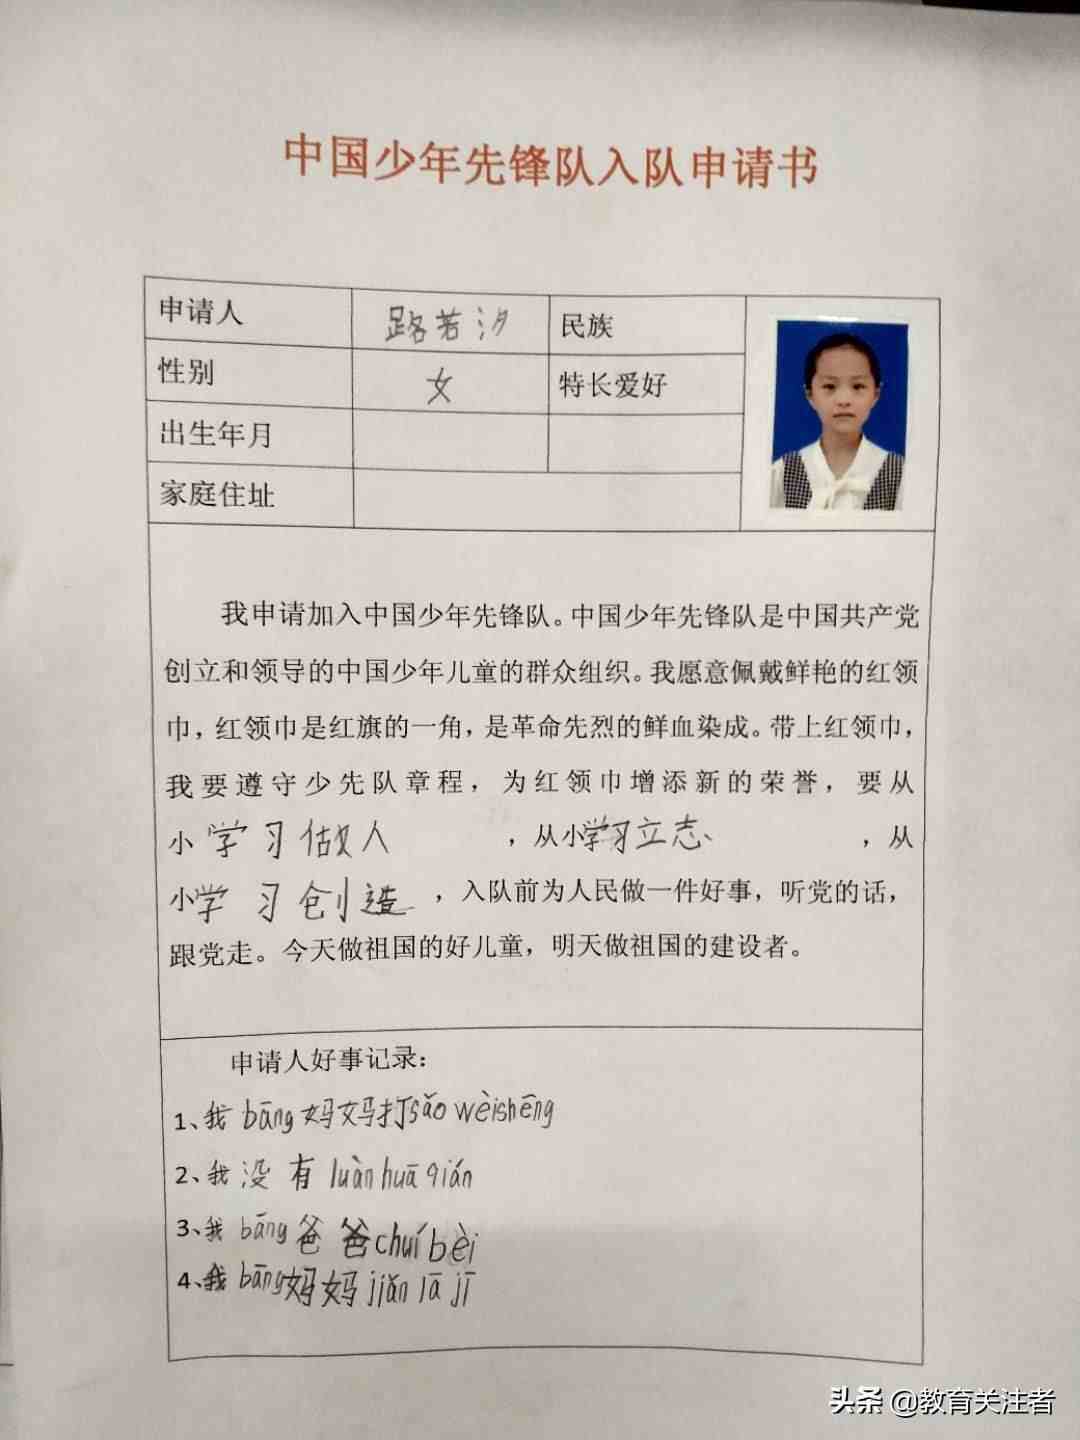 中国少年先锋队入队申请书
申请人 路若汐 民族
性别 女 特长爱好
出生年月
家庭住址
我申请加入中国少年先锋队。中国少年先锋队是中国共产党
创立和领导的中国少年儿童的群众组织。我愿意佩戴鲜艳的红领
巾，红领巾是红旗的一角，是革命先烈的鲜血染成。带上红领巾，
我要遵守少先队章程，为红领巾增添新的荣誉，要从
小学习做人，从小学习立志、，从
小学习创造，入队前为人民做一件好事，听党的话，
跟党走。今天做祖国的好儿童，明天做祖国的建设者。
申请人好事记录：
1、我bāng妈妈打sǎo wèishēng
2、我没有luàn huā qián
3、我bāng爸爸chuí bèi
4、我bāng妈妈jiǎn lā jī
头条 @教育关注者